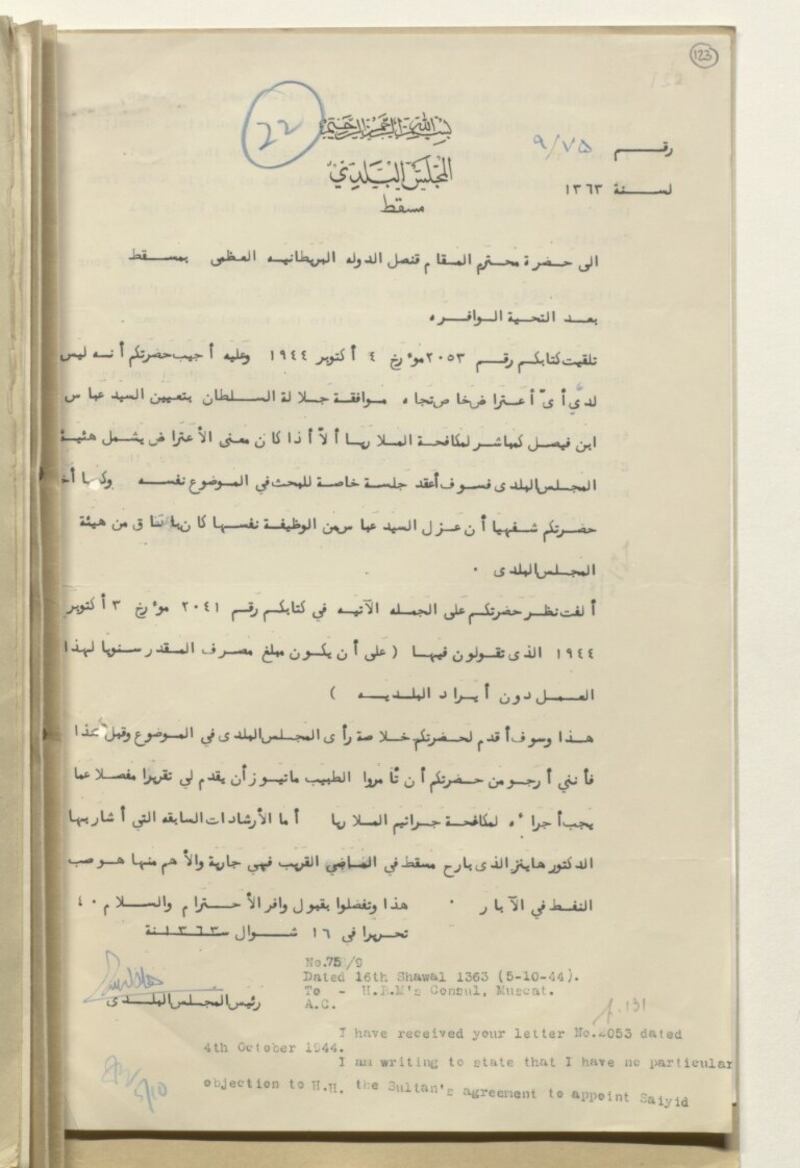 123
22
بسم الله الرحمن الرحيم
المجلس البلدي
مسقط
رقم ٩/٧٥
لسنة ١٣٦٣
الى حضرة محترم المقام قنصل الدوله البريطانيه العظمى بمسقط
بعد التحية الوافره
تلقيت كتابكم رقم ٢٠٥٣ موءرخ ٤ أكتوبر ١٩٤٤ وعليه أجيب حضرتكم أنه ليس
لدي أى أعتراض خاص تجاه موافقة جلالة السلطان بتعيين السيد عباس
ابن فيصل كمباشر لمكافحة الملاريا ألا أذا كان معنى الأعتراض يشمل هئية
المجلس البلدى فسوف أعقد جلسة خاصة للبحث في الموضوع نفسه وكما
حضرتكم شفهيا أن عزل السيد عباس من الوظيفة نفسها كان من هيئة
المجلس البلدى ٠
ألفت نظر حضرتكم على الجمله الآتيه في كتابكم رقم ٢٠٤١ موءرخ ٣ أكتوبر
١٩٤٤ الذى تقولون فيها ( على أن يكون مبلغ مصرف المقدر سنويا لهذا
العمل دون أيراد البلديه )
هذا وسوف أقدم لحضرتكم خلاصة رأى المجلس البلدى في الموضوع وقبل هذا
فأنني أرجو من حضرتكم أن تأمروا الطبيب مانيوز أن يقدم لي تقريرا مفصلا عما
يجب أجراءه لمكافحة جراثيم الملاريا أما الأرشادات السابقه التي أشار بها
الدكتور هاينز الذى بارح مسقط في الماضي القريب فهي جارية والأهم منها هو صب
النفط في الآبار ٠ هذا وتفضلوا بقبول وافر الأحترام والسلام ٠،
تحريرا في ١٦ شوال سنة ١٣٦٣
رئيس المجلس البلدى
No.75/9
Dated 16th Shawal 1363 (5-10-44).
To - H.B.M's Consul, Muscat.
A.C.
f.131
I have received your letter No.2053 dated
4th October 1944.
I am writing to state that I have no particular
objection to H.H. the Sultan's agreement to appoint Saiyid
5/10